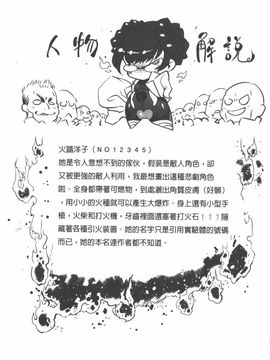 人物解說
火蹈洋子（NO12345）
她是令人意想不到的傢伙，假裝是敵人角色，卻
又被更強的敵人利用，我最想畫出這種悲劇角色
啦。全身都帶著可燃物，到處漏出角質皮膚（好髒）
，用小小的火種就可以產生大爆炸。身上還有小型手
槍，火柴和打火機，牙齒裡面還塞著打火石！？？隱
藏著各種引火裝置。她的名字只是引用實驗體的號碼
而已，她的本名連作者都不知道。